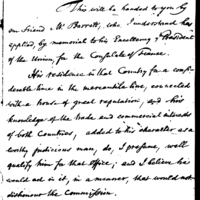 This will be handed to you by
our Friend Mr. Barrett, who I understand has
applied, by memorial to his Excellency the President
of the Union, for the Consulate of France.
His residence in that Country for a consi-
derable time in the mercantile line, connected
with a house of great reputation, and his
knowledge of the trade and commercial interests
of both Countries, added to his character as a
worthy judicious man, do, I presume, well
qualify him for that office; and I believe he
would act in it, in a manner, that would not
dishonour the Commission.